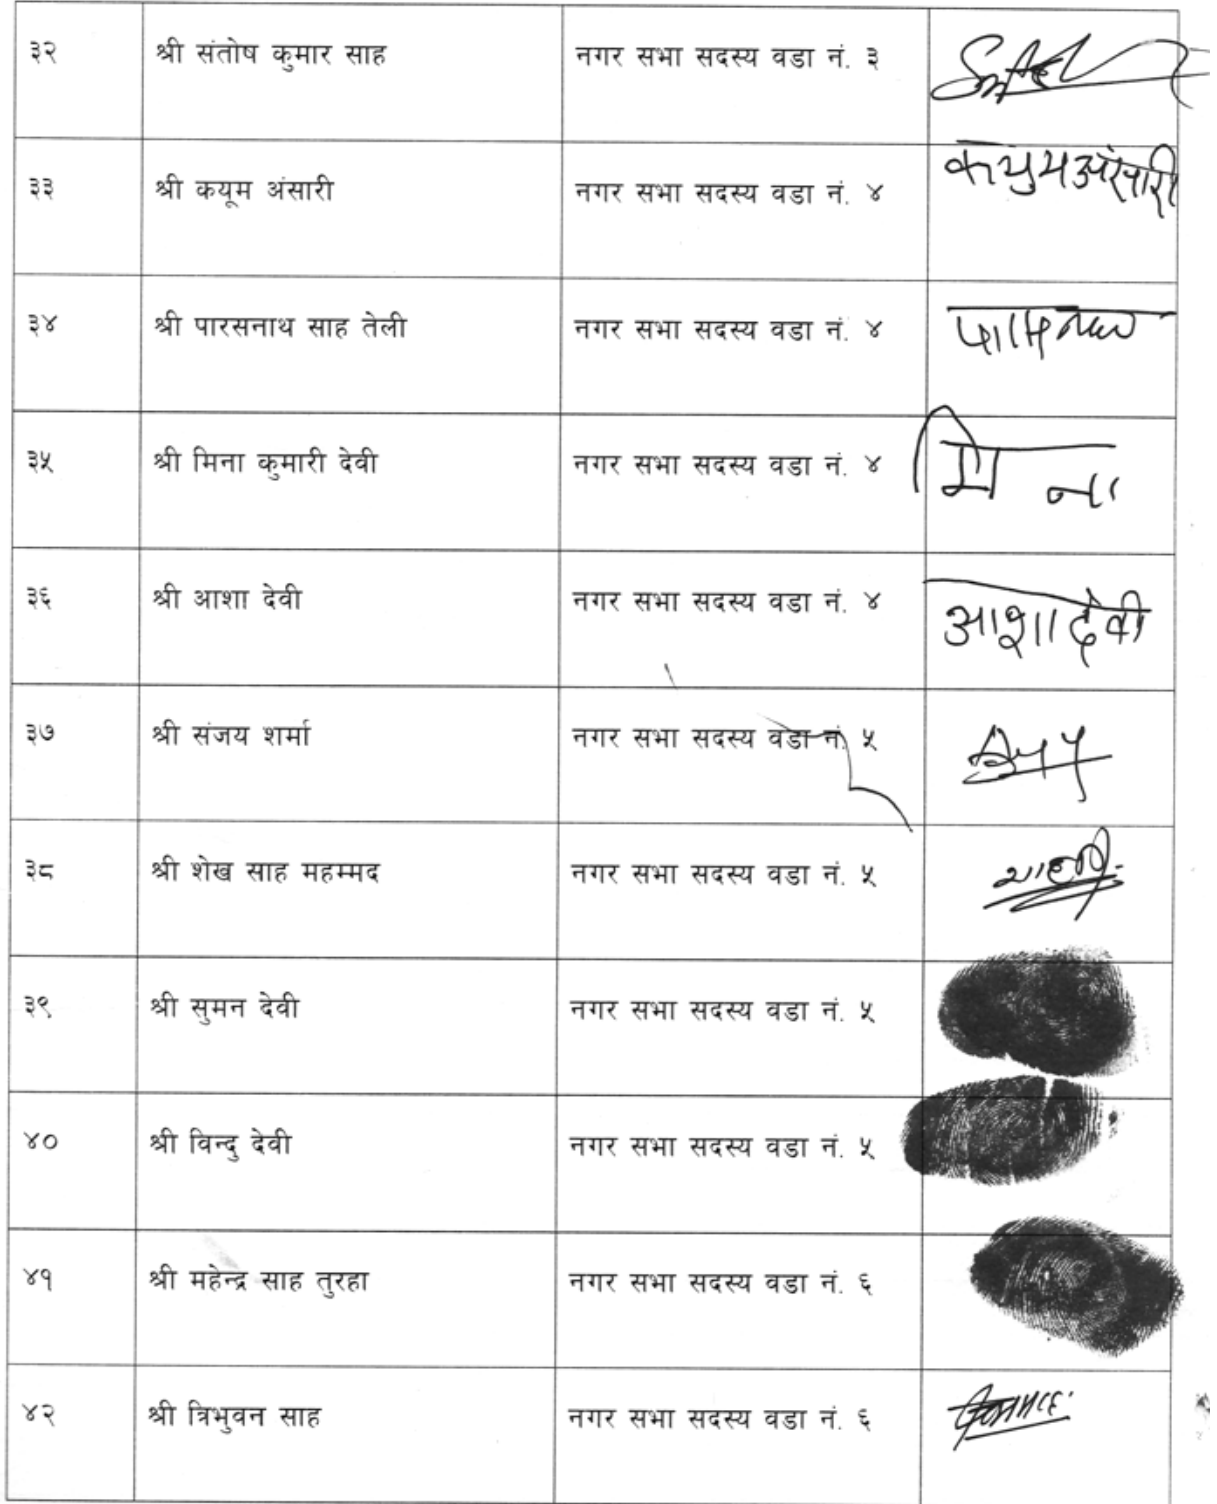 ३२ श्री संतोष कुमार साह नगर सभा सदस्य वडा नं. ३
३३ श्री कयूम अंसारी नगर सभा सदस्य वडा नं. ४ कयुम अंसारी
३४ श्री पारसनाथ साह तेली नगर सभा सदस्य वडा नं. ४
३५ श्री मिना कुमारी देवी नगर सभा सदस्य वडा नं. ४ मिना
३६ श्री आशा देवी नगर सभा सदस्य वडा नं. ४ आशा देवी
३७ श्री संजय शर्मा नगर सभा सदस्य वडा नं. ५
३८ श्री शेख साह महम्मद नगर सभा सदस्य वडा नं. ५
३९ श्री सुमन देवी नगर सभा सदस्य वडा नं. ५
४० श्री विन्दु देवी नगर सभा सदस्य वडा नं. ५
४१ श्री महेन्द्र साह तुरहा नगर सभा सदस्य वडा नं. ६
४२ श्री त्रिभुवन साह नगर सभा सदस्य वडा नं. ६